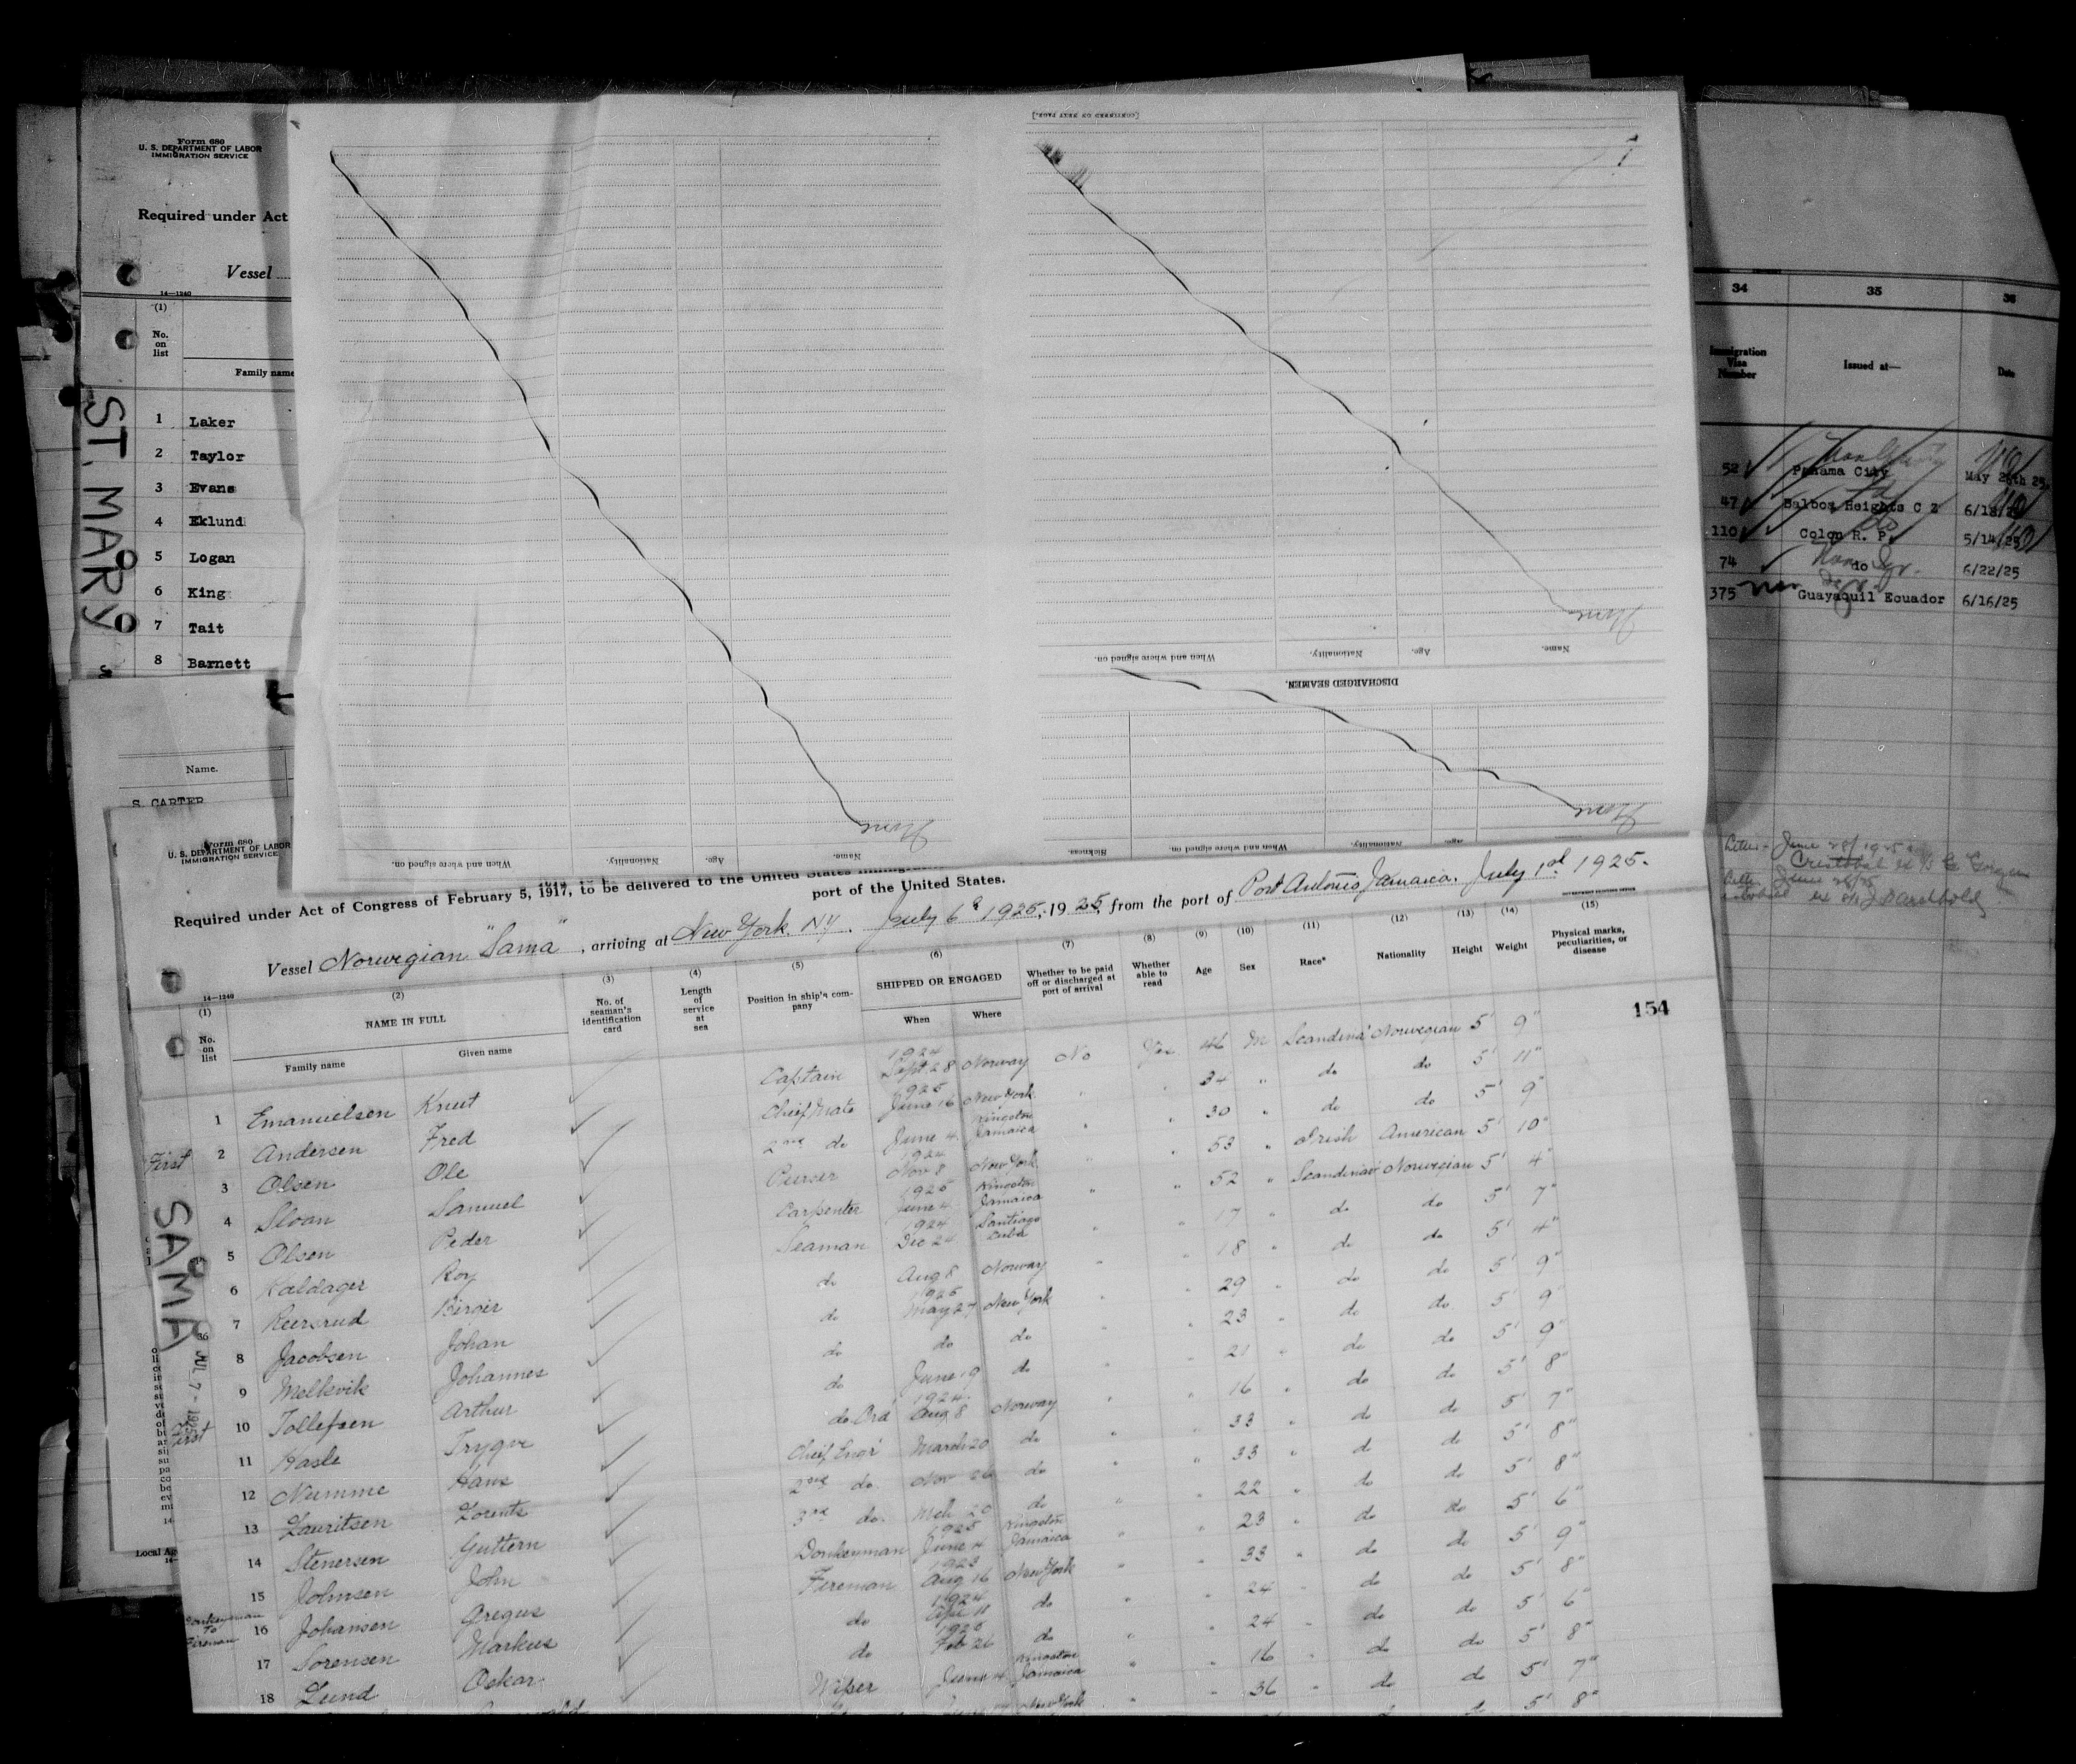 Form 680
U. S. DEPARTMENT OF LABOR
IMMIGRATION SERVICE
Required under Act
Vessel
14—1240
(1)
No. on list
Family name
ST. MARY
1 Laker
2 Taylor
3 Evans
4 Eklund
5 Logan
6 King
7 Tait
8 Barnett
Name.
S. CARTER
[CONTINUED ON NEXT PAGE.]
None
Name. Age. Nationality. When and where signed on.
DISCHARGED SEAMEN.
None
Name. Age. Nationality. When and where signed on. Sickness.
None
Name. Age. Nationality. When and where signed on.
34 35 36
Immigration Visa Number Issued at— Date
52 Panama City May 28th 25
47 Balboa Heights C Z 6/18/25
110 Colon R. P. 5/14/25
74 do 6/22/25
375 Guayaquil Ecuador 6/16/25
Form 680
U. S. DEPARTMENT OF LABOR
IMMIGRATION SERVICE
Required under Act of Congress of February 5, 1917, to be delivered to the United States
port of the United States.
Vessel Norwegian "Sama", arriving at New York. NY. July 6th 1925, 1925, from the port of Port Antonio Jamaica. July 1st 1925.
14—1240
(1) (2) (3) (4) (5) (6) (7) (8) (9) (10) (11) (12) (13) (14) (15)
No. on list NAME IN FULL No. of seaman's identification card Length of service at sea Position in ship's company SHIPPED OR ENGAGED Whether to be paid off or discharged at port of arrival Whether able to read Age Sex Race* Nationality Height Weight Physical marks, peculiarities, or disease
Family name Given name When Where
154
SAMA
JUL 7 - 1925
1 Emanuelsen Knut Captain 1924 Sept 28 Norway No Yes 46 M Scandina' Norwegian 5' 9"
First 2 Andersen Fred Chief Mate 1925 June 16 New York 34 " do do 5' 11"
3 Olsen Ole 2nd do June 4 Kingston Jamaica 30 " do do 5' 9"
4 Sloan Samuel Purser 1924 Nov 8 New York 53 " Irish American 5' 10"
5 Olsen Peder Carpenter 1925 June 4 Kingston Jamaica 52 " Scandinav' Norwegian 5' 4"
6 Kaldager Roy Seaman 1924 Dec 24 Santiago Cuba 17 " do do 5' 7"
7 Reersrud Birger do Aug 8 Norway 18 " do do 5' 4"
8 Jacobsen Johan do 1925 May 27 New York 29 " do do 5' 9"
9 Melkvik Johannes do do do 23 " do do 5' 9"
First 10 Tollefsen Arthur do June 19 do 21 " do do 5' 9"
11 Hasle Trygve do Ord' 1924 Aug 8 Norway 16 " do do 5' 8"
12 Numme Hans Chief Engr' March 20 do 33 " do do 5' 7"
13 Lauritsen Lorents 2nd do. Nov 26 do 33 " do do 5' 8"
14 Stenersen Guttorm 3rd do. Mch 20 do 22 " do do 5' 8"
15 Johnsen John Donkeyman 1925 June 4 Kingston Jamaica 23 " do do 5' 6"
Donkeyman to Fireman 16 Johansen Gregus Fireman 1923 Aug 16 New York 33 " do do 5' 9"
17 Sorensen Markus do 1924 do 24 " do do 5' 8"
18 Lund Oskar do 1925 Feb 26 do 24 " do do 5' 6"
Wiper June 4 Kingston Jamaica 16 " do do 5' 8"
New York 36 " do do 5' 7"
5' 8"